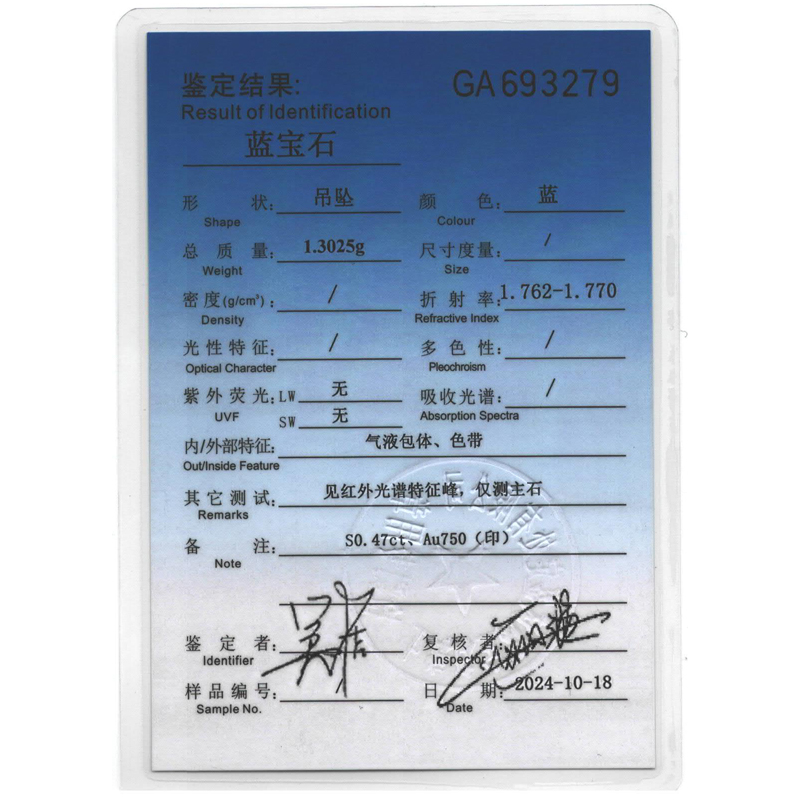 鉴定结果: GA693279
Result of Identification
蓝宝石
形 状: 吊坠 颜 色: 蓝
Shape Colour
总 质 量: 1.3025g 尺寸度量: /
Weight Size
密度(g/cm³): / 折 射 率: 1.762-1.770
Density Refractive Index
光性特征: / 多 色 性: /
Optical Character Pleochroism
紫外荧光: LW 无 吸收光谱: /
UVF SW 无 Absorption Spectra
内/外部特征: 气液包体、色带
Out/Inside Feature
其它测试: 见红外光谱特征峰, 仅测主石
Remarks
备 注: S0.47ct、Au750（印）
Note
鉴 定 者: 复 核 者:
Identifier Inspector
样品编号: 日 期: 2024-10-18
Sample No. Date